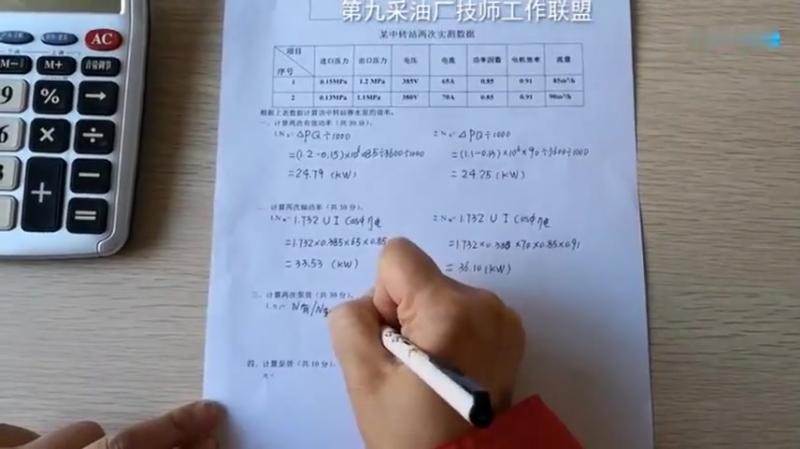 第九采油厂技师工作联盟
某中转站两次实测数据
项目 序号 进口压力 出口压力 电压 电流 功率因数 电机效率 流量
1 0.15MPa 1.2 MPa 385V 65A 0.85 0.91 85m³/h
2 0.13MPa 1.1MPa 380V 70A 0.85 0.91 90m³/h
根据上表数据计算该中转站掺水泵的泵效。
一、计算两次有效功率（共30分）。
1.N有= △PQ÷1000 2.N有= △PQ÷1000
=(1.2-0.15)×10⁶×85÷3600÷1000 =(1.1-0.13)×10⁶×90÷3600÷1000
=24.79 (KW) = 24.25 (KW)
二、计算两次轴功率（共30分）。
1.N轴= 1.732 U I cosφ η电 2.N轴= 1.732 U I cosφ η电
=1.732×0.385×65×0.85 =1.732×0.380×70×0.85×0.91
=33.53 (KW) = 36.10 (KW)
三、计算两次泵效（共30分）。
N有/N
四、计算泵效（共10分）。
AC
M− M+
9 % →
6 × ÷
3 + −